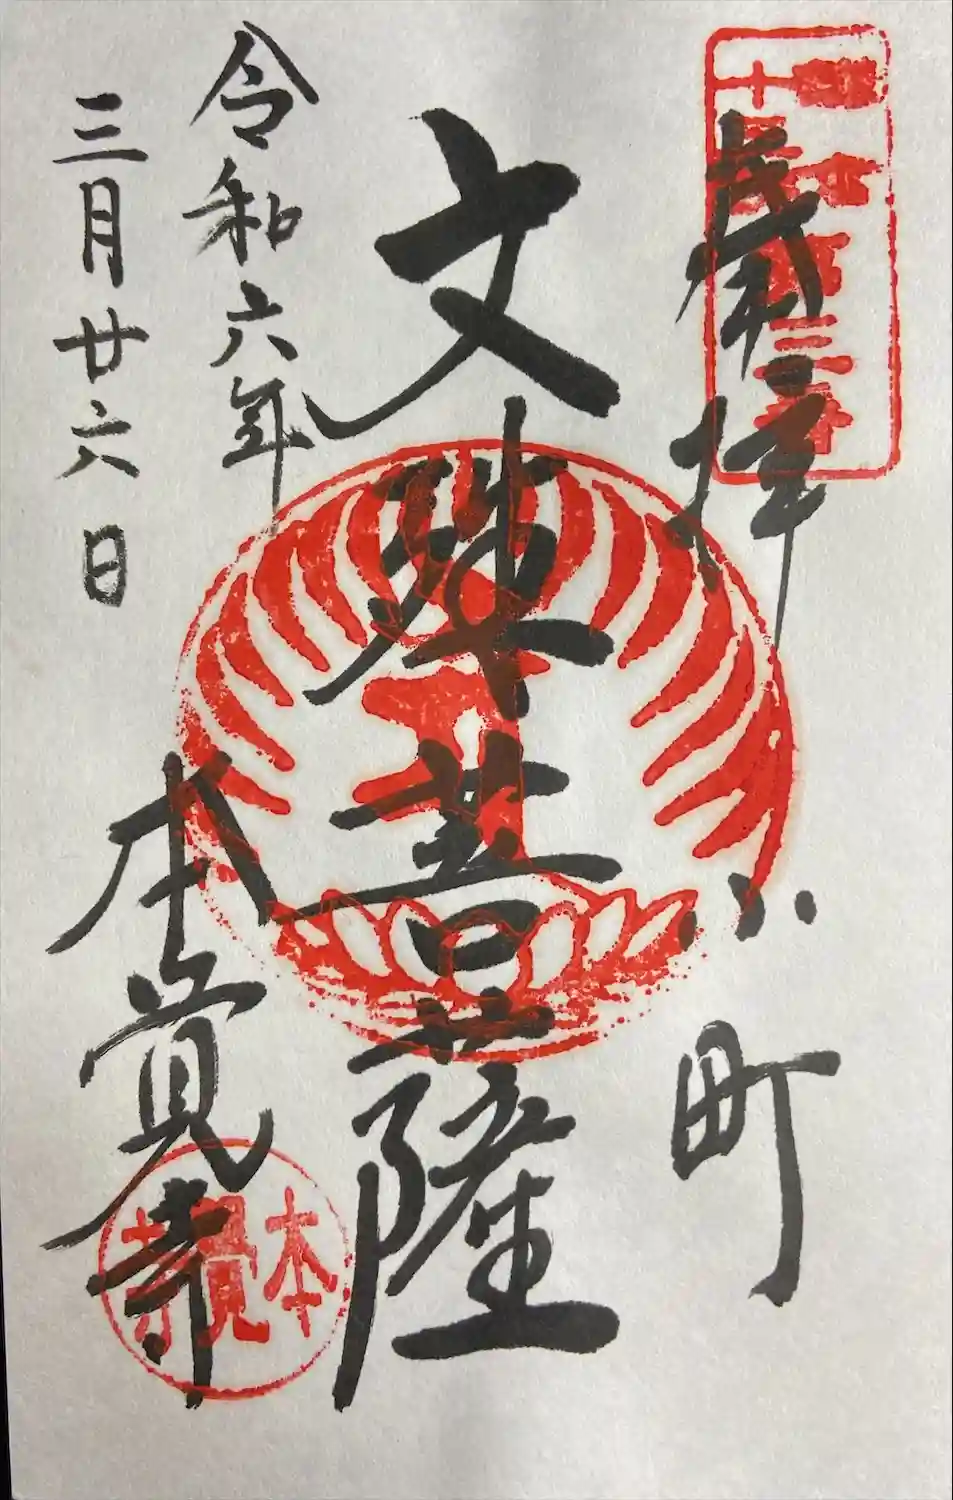 奉拝
小町
文殊菩薩
令和六年
三月廿六日
本覚寺
本覺寺